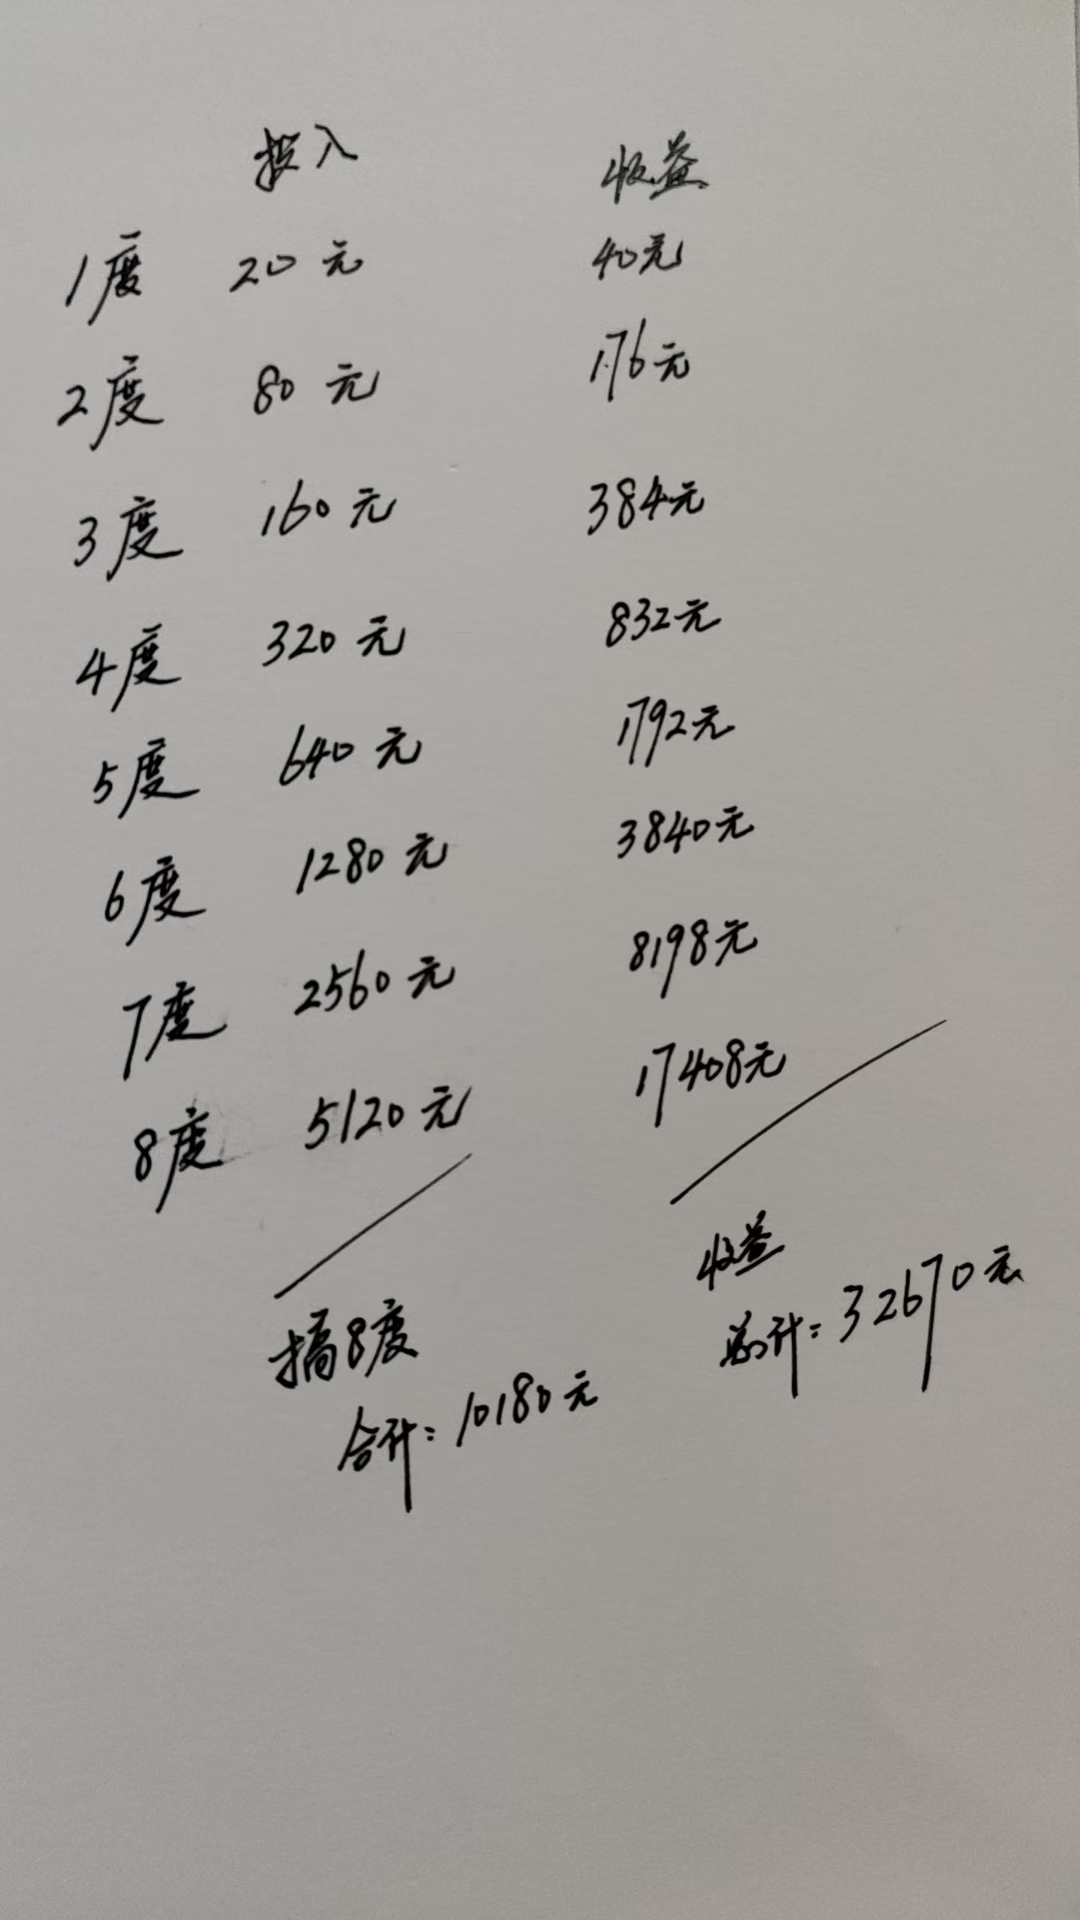 投入 收益
1度 20元 40元
2度 80元 176元
3度 160元 384元
4度 320元 832元
5度 640元 1792元
6度 1280元 3840元
7度 2560元 8198元
8度 5120元 17408元
搞8度
合计:10180元
收益
总计:32670元